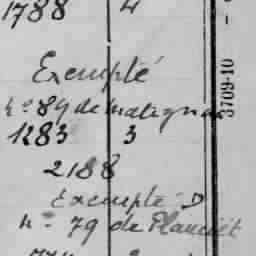 1788 4
Exempté
n° 89 de Matignon
1283 3
2188
Exempté D
n° 79 de Plancoët
3709-10